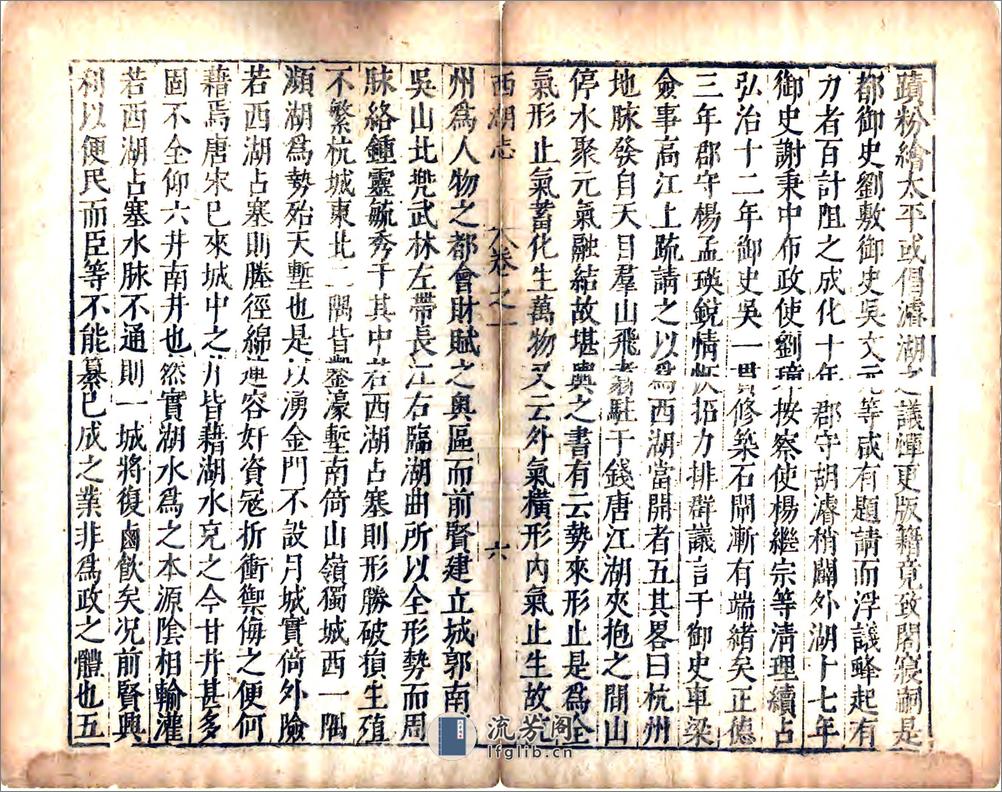 蹟粉繪太平或倡濬湖之議憚更版籍竟致閣寢嗣是
都御史劉敷御史吳文元等咸有題請而浮議蜂起有
力者百計阻之成化十年郡守胡濬稍闢外湖十七年
御史謝秉中布政使劉璋按察使楊繼宗等清理續占
弘治十二年御史吳一貫修築石閘漸有端緒矣正德
三年郡守楊孟瑛銳情恢拓力排群議言于御史車梁
僉事高江上疏請之以為西湖當開者五其畧曰杭州
地脉發自天目羣山飛翥駐于錢唐江湖夾抱之間山
停水聚元氣融結故堪輿之書有云勢來形止是為全
氣形止氣蓄化生萬物又云外氣橫形內氣止生故
西湖志 卷之一 六
州為人物之都會財賦之奧區而前賢建立城郭南
吳山北兠武林左帶長江右臨湖曲所以全形勢而周
脉絡鍾靈毓秀于其中若西湖占塞則形勝破損生殖
不繁杭城東北二隅皆鑿濠塹南倚山嶺獨城西一隅
瀕湖為勢殆天塹也是以湧金門不設月城實倚外險
若西湖占塞則塍徑綿連容奸資寇折衝禦侮之便何
藉焉唐宋已來城中之井皆藉湖水克之今甘井甚多
固不全仰六井南井也然實湖水為之本源陰相輸灌
若西湖占塞水脉不通則一城將復鹵飲矣况前賢興
利以便民而臣等不能纂已成之業非為政之體也五
流芳阁
lfglib.cn